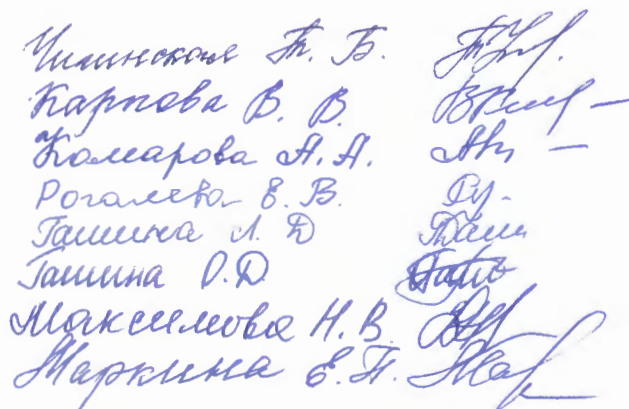 Чилинская Т. Б.
Карпова В. В.
Комарова А. А.
Рогалева Е. В.
Гашина Л. Д
Гашина О. Д.
Максимова Н. В
Маркина Е. П.